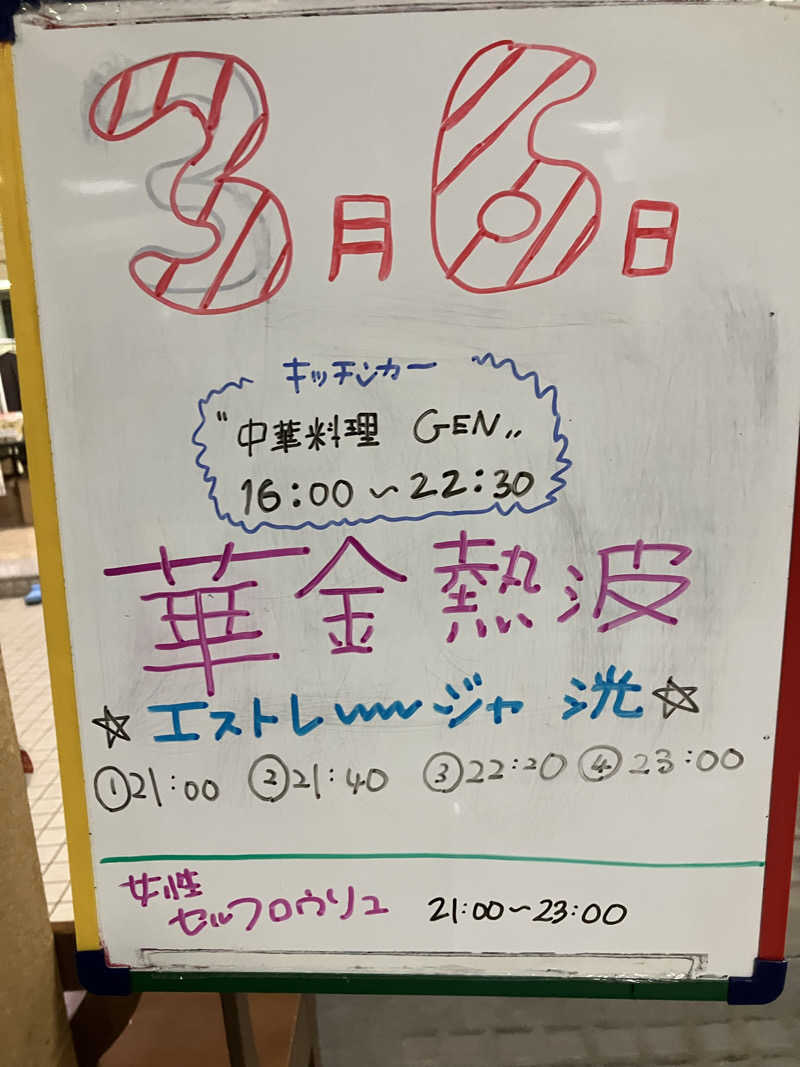 3月6日
キッチンカー
"中華料理 GEN„
16:00~22:30
華金熱波
☆エストレ〰ジャ 洸☆
①21:00 ②21:40 ③22:20 ④23:00
女性
セルフロウリュ 21:00~23:00